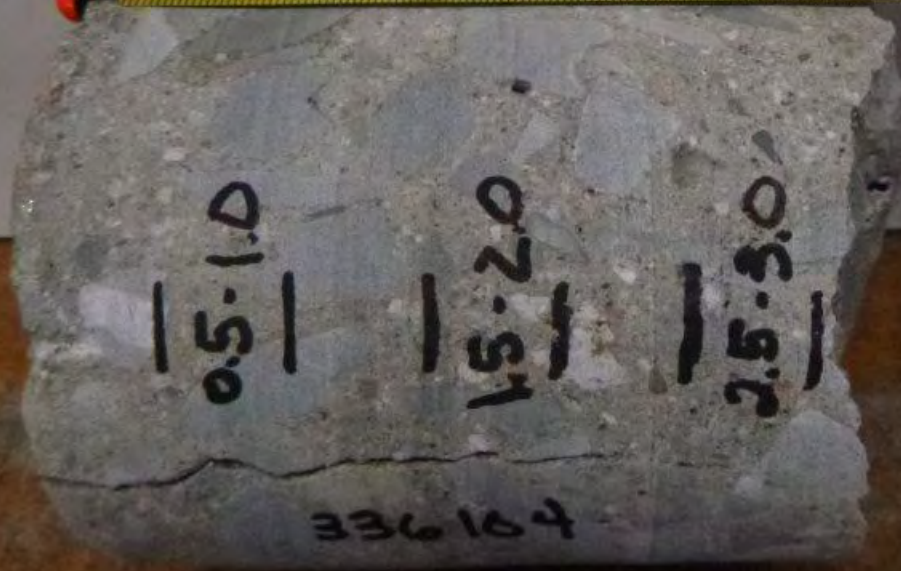 0.5-1.0
1.5-2.0
2.5-3.0
336104